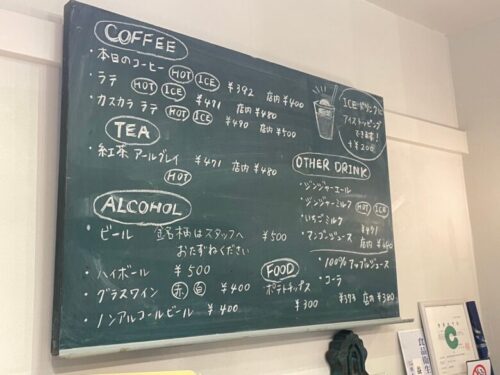 COFFEE
・本日のコーヒー HOT ICE ¥392 店内¥400
・ラテ HOT ICE ¥471 店内¥480
・カスカラ ラテ HOT ICE ¥490 店内¥500
TEA
・紅茶 アールグレイ ¥471 店内¥480
HOT
ALCOHOL
・ビール 銘柄はスタッフへ ¥500
おたずねください
・ハイボール ¥500
・グラスワイン 赤 白 ¥400
・ノンアルコールビール ¥400
FOOD
ポテトチップス
¥300
ICEドリンクに
アイストッピング
できます!
+¥200
OTHER DRINK
・ジンジャーエール
・ジンジャーミルク HOT ICE
・いちごミルク ¥471
・マンゴージュース 店内¥480
・100%アップルジュース
・コーラ
¥373 店内¥380
食品衛生